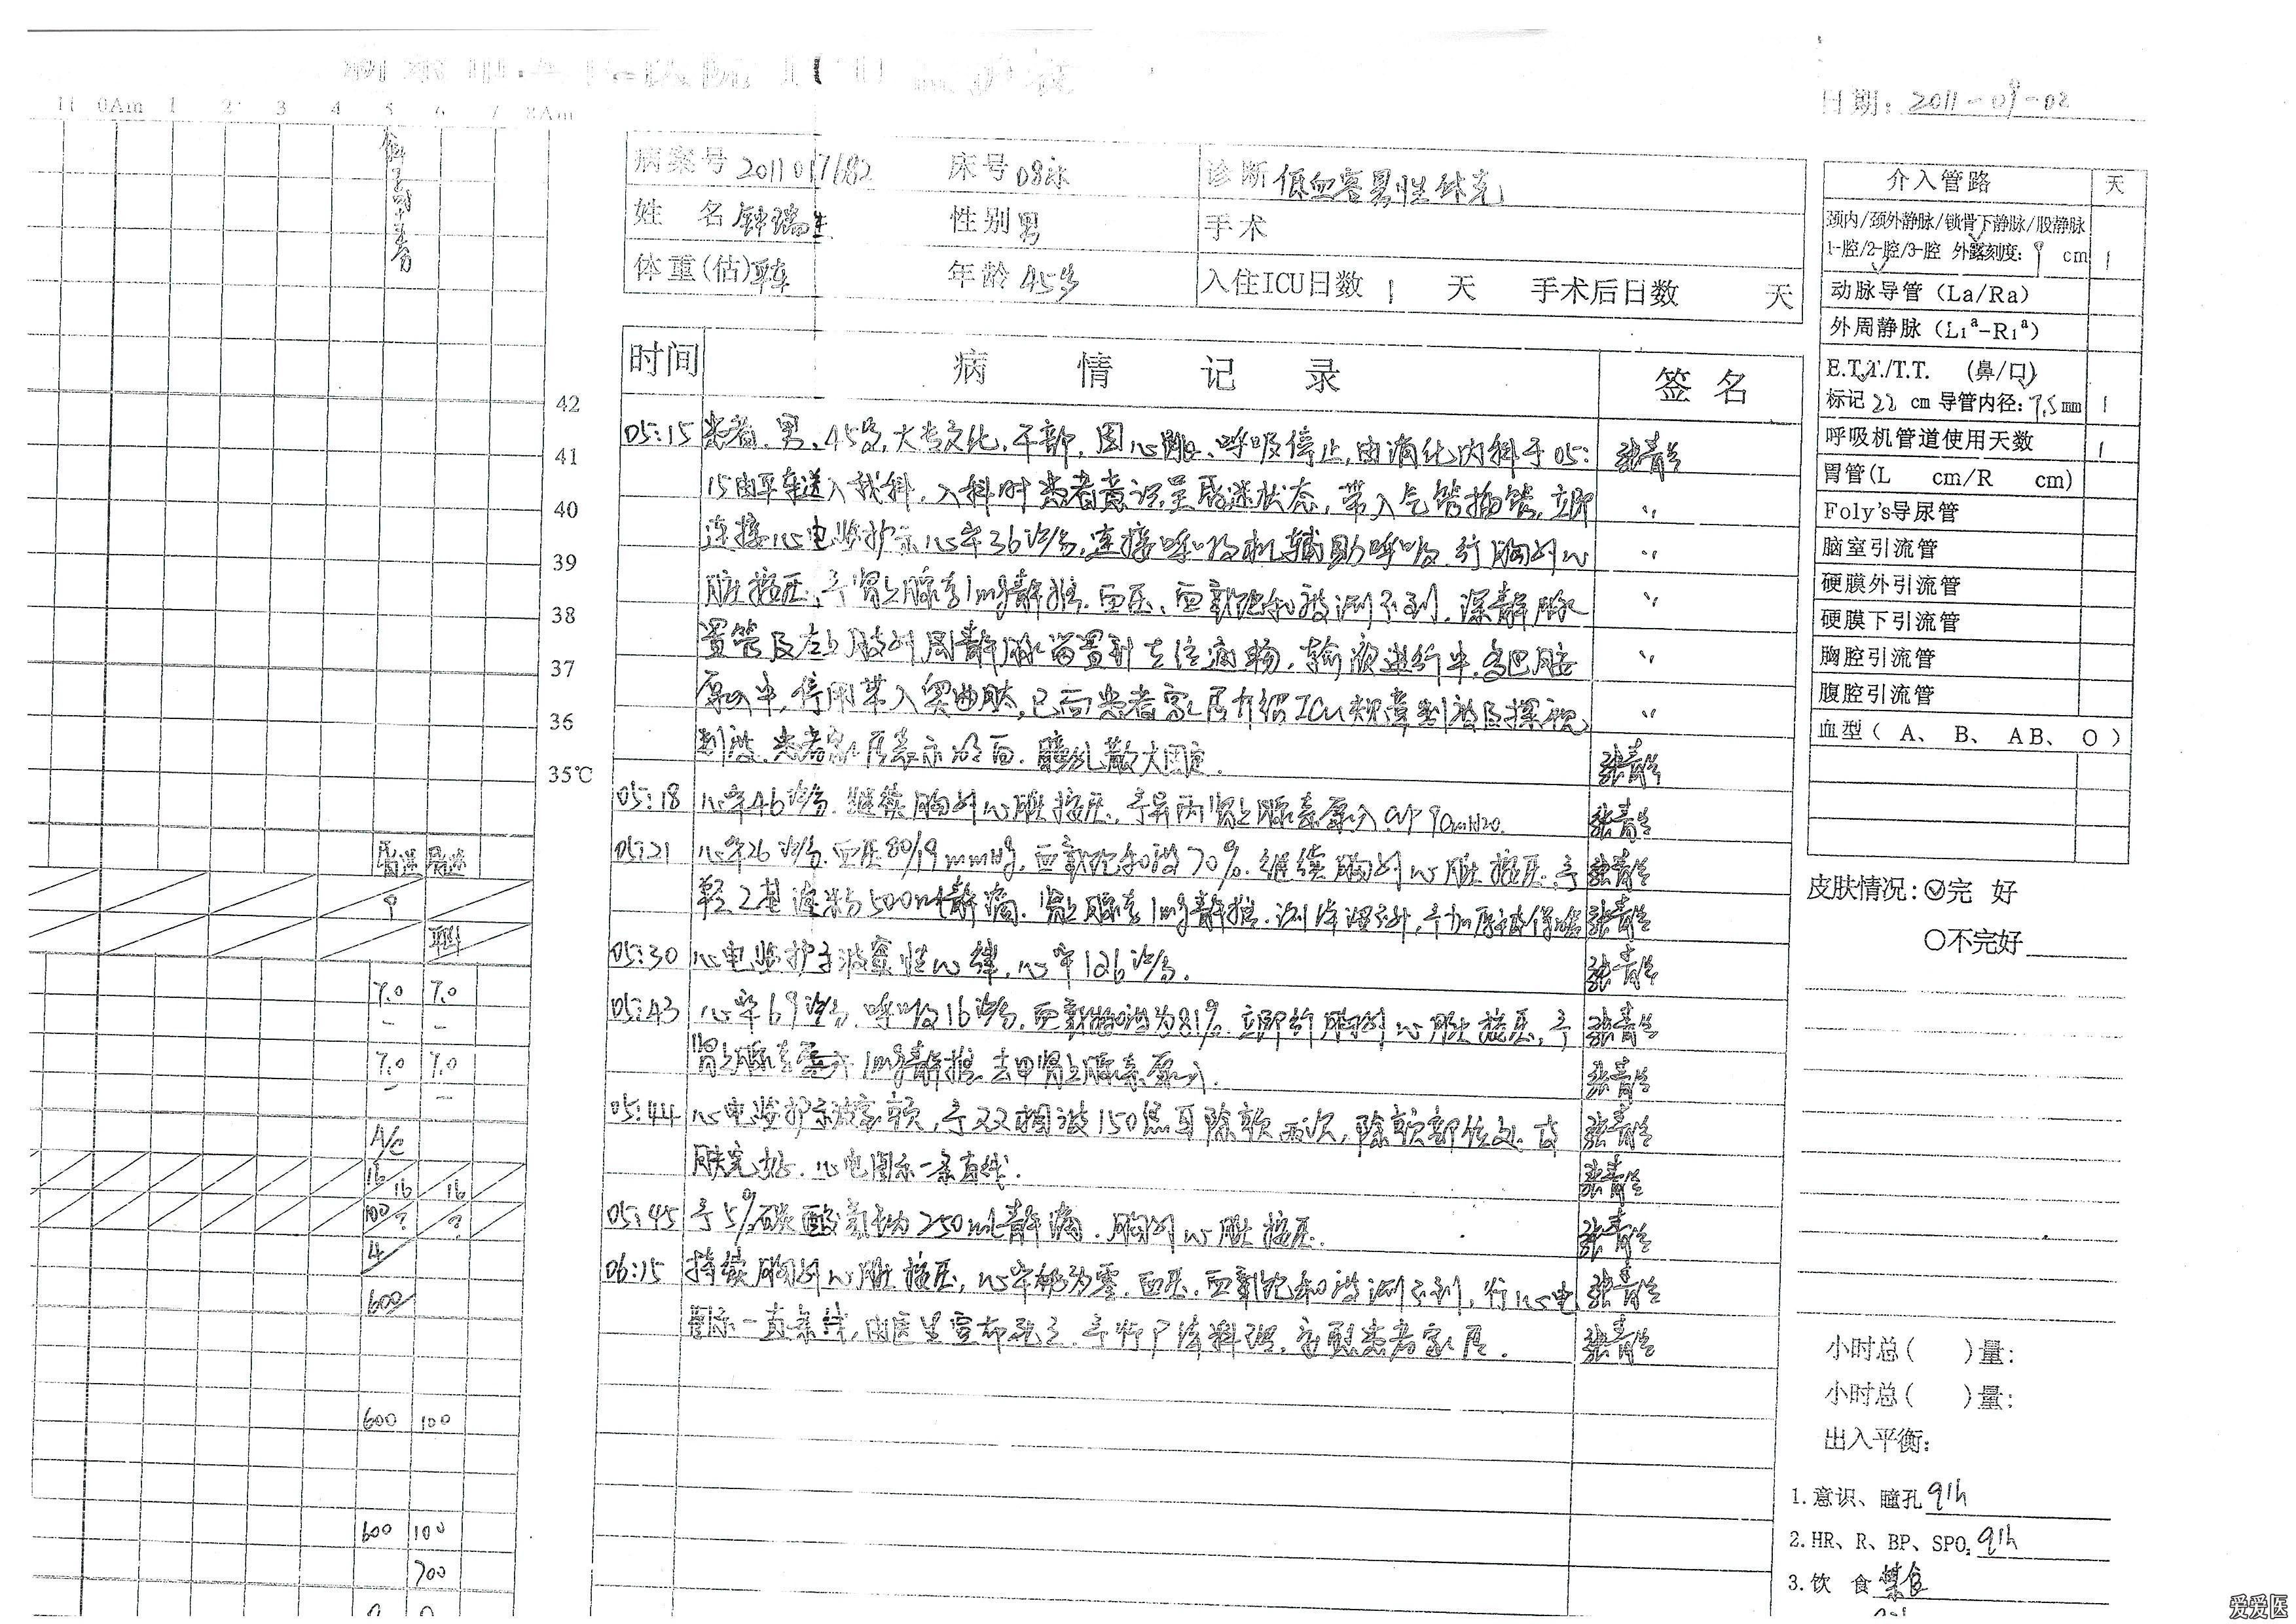 日期: 2011-09-02
11 0Am 1 2 3 4 5 6 7 8Am
病案号 床号 08床 诊断 低血容量性休克
姓 名 钟瑞生 性别 男 手术
体重(估) 平车 年龄 45岁 入住ICU日数 1 天 手术后日数 天
时间 病 情 记 录 签 名
05:15 患者、男、45岁,大专文化,干部,因心跳、呼吸停止,由消化内科于05:
15由平车送入我科,入科时患者意识呈昏迷状态,带入气管插管,立即
连接心电监护示心率36次/分,连接呼吸机辅助呼吸,行胸外心
脏按压,予肾上腺素1mg静推,血压、血氧饱和度测不到,深静脉
置管及左上肢外周静脉留置针在位通畅,输液进行中,多巴胺
泵入中,停用带入奥曲肽,已向患者家属介绍ICU规章制度及探视
制度,患者家属表示明白.瞳孔散大固定.
05:18 心率46次/分.继续胸外心脏按压,予异丙肾上腺素泵入
05:21 心率26次/分.血压80/19mmHg,血氧饱和度70%.继续胸外心脏按压,予
羟乙基淀粉500ml静滴.肾上腺素1mg静推.测体温不升,予加床被保暖
05:30 心电监护示 性心律,心率126次/分.
05:43 心率69次/分.呼吸16次/分,血氧饱和度为81%.立即行胸外心脏按压,予
肾上腺素 1mg静推.去甲肾上腺素泵入.
05:44 心电监护示 颤,予双相波150焦耳除颤两次,除颤部位处皮
肤完好.心电图示一条直线.
05:45 予5%碳酸氢钠250ml静滴.胸外心脏按压.
06:15 持续胸外心脏按压,心率 为零.血压.血氧饱和度测不到,行心电
图示一直条线,由医生宣布死亡.予行尸体料理,安慰患者家属.
42
41
40
39
38
37
36
35℃
昏迷 昏迷
7.0 7.0
- -
7.0 7.0
- -
A/C
16 16 16
100 ? ?
4
600
600 100
600 100
700
0 0
介入管路 天
颈内/颈外静脉/锁骨下静脉/股静脉
1-腔/2-腔/3-腔 外露刻度: 9 cm 1
动脉导管 (La/Ra)
外周静脉 (L1ª-R1ª)
E.T.T./T.T. (鼻/口)
标记 22 cm 导管内径: 7.5 mm 1
呼吸机管道使用天数 1
胃管(L cm/R cm)
Foly's导尿管
脑室引流管
硬膜外引流管
硬膜下引流管
胸腔引流管
腹腔引流管
血型 ( A、 B、 AB、 O )
皮肤情况: 完 好
○不完好
小时总( )量:
小时总( )量:
出入平衡:
1.意识、瞳孔 q1h
2.HR、R、BP、SPO₂ q1h
3.饮 食 禁食
爱爱医